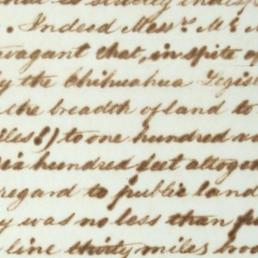 . Indeed Messrs. Mc M
vagant that, in spite o
y the Chihuahua Legis
the breadth of land to
les!) to one hundred a
six hundred feet altoge
regard to public land
y was no less than
line thirty miles broa